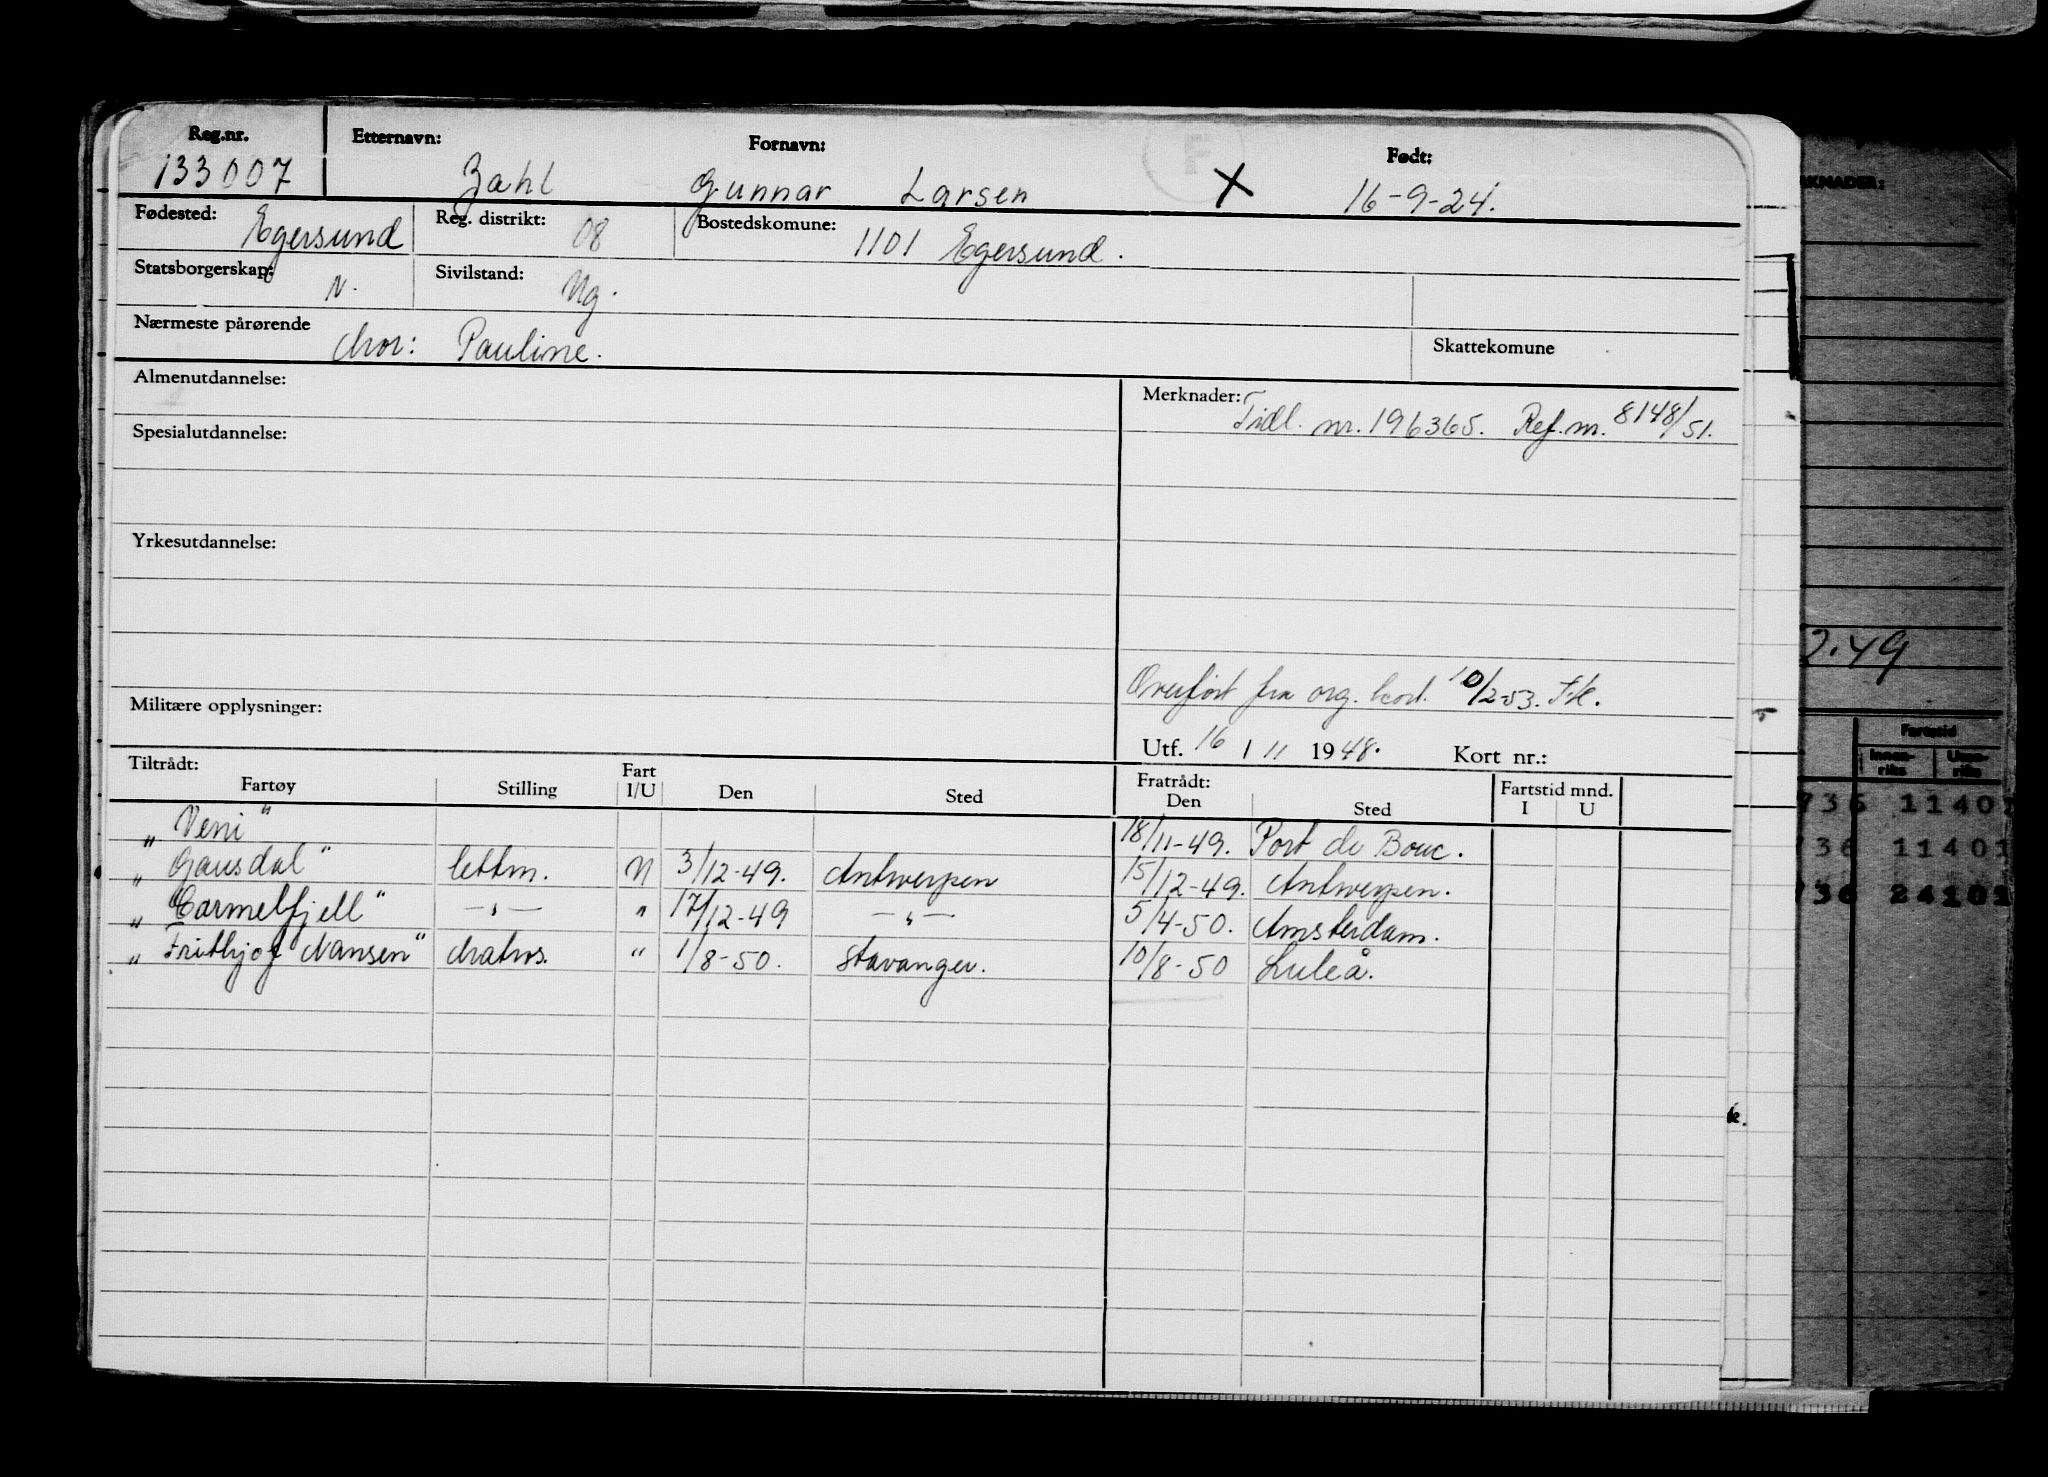 Reg.nr. Etternavn: Fornavn: Født:
133007 Zahl Gunnar Larsen X 16-9-24.
Fødested: Egersund Reg. distrikt: 08 Bostedskomune: 1101 Egersund.
Statsborgerskap: N. Sivilstand: Ug.
Nærmeste pårørende Mor: Pauline. Skattekomune
Almenutdannelse: Merknader: Tidl. nr. 196365. Ref. nr. 8148/51.
Spesialutdannelse:
Yrkesutdannelse:
Overført fra org. kort. 10/2-53. F.K.
Militære opplysninger:
Utf. 16 / 11 1948. Kort nr.:
Tiltrådt: Fratrådt:
Fartøy Stilling Fart I/U Den Sted Den Sted Fartstid mnd. I U
"Veni" 18/11-49. Port de Bouc.
"Gausdal" lettm. U 3/12-49. Antwerpen 15/12-49. Antwerpen.
"Carmelfjell" —"— " 17/12-49 —"— 5/4-50. Amsterdam.
"Frithjof Nansen" Matros. " 1/8-50. Stavanger. 10/8-50 Luleå.
KNADER:
2.49
Fartstid
Innen-riks Uten-riks
736 11401
736 11401
736 24101
k.